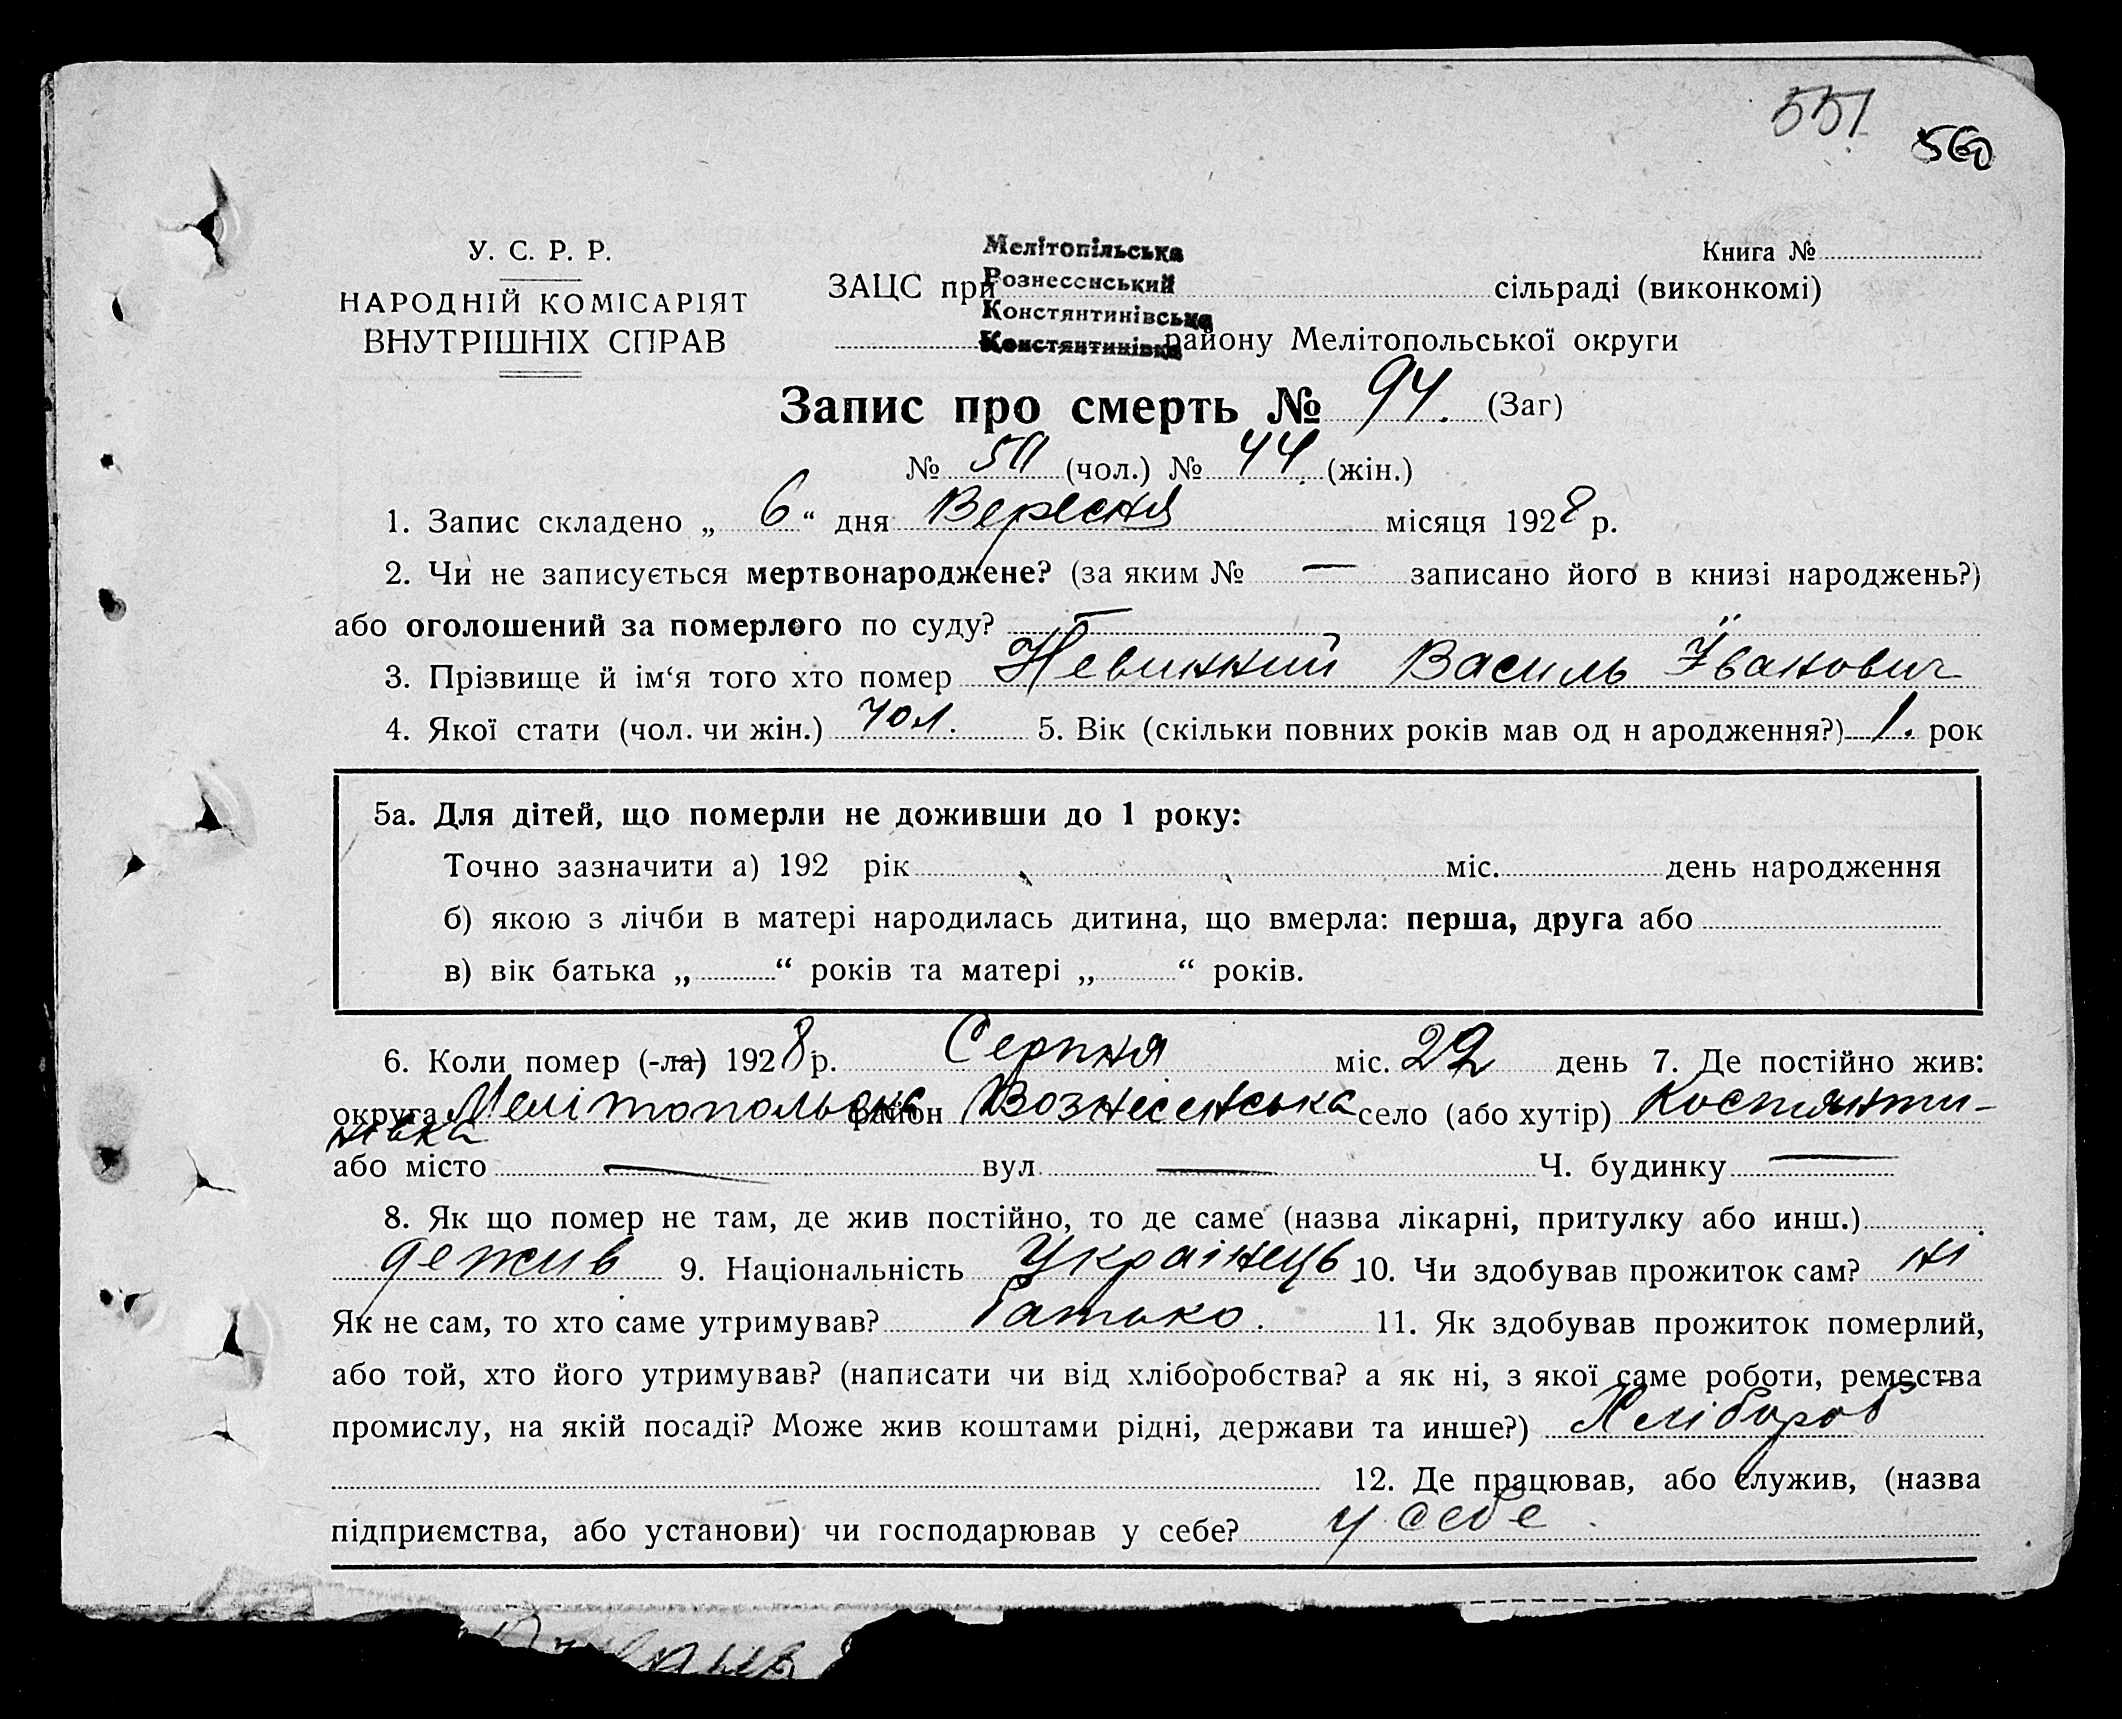 551
560
У. С. Р. Р.
НАРОДНІЙ КОМІСАРІЯТ
ВНУТРІШНІХ СПРАВ
Мелітопільська
Вознесенський
Костянтинівська
Костянтинівка
Книга №
ЗАЦС при сільраді (виконкомі)
району Мелітопольської округи
Запис про смерть № 94. (Заг)
№ 50 (чол.) № 44 (жін.)
1. Запис складено „ 6 “ дня Вересня місяця 1928 р.
2. Чи не записується мертвонароджене? (за яким № — записано його в книзі народжень?)
або оголошений за померлого по суду? —
3. Прізвище й ім‘я того хто помер Невинний Василь Іванович
4. Якої стати (чол. чи жін.) чол. 5. Вік (скільки повних років мав од н ародження?) 1. рок
5а. Для дітей, що померли не доживши до 1 року:
Точно зазначити а) 192 рік міс. день народження
б) якою з лічби в матері народилась дитина, що вмерла: перша, друга або
в) вік батька „ “ років та матері „ “ років.
6. Коли помер (-ла) 1928 р. Серпня міс. 22 день 7. Де постійно жив:
округа Мелітопольська район Вознесенська село (або хутір) Костянти-
нівка
або місто — вул — Ч. будинку —
8. Як що помер не там, де жив постійно, то де саме (назва лікарні, притулку або инш.)
де жив 9. Національність Українець 10. Чи здобував прожиток сам? ні
Як не сам, то хто саме утримував? Батько. 11. Як здобував прожиток померлий,
або той, хто його утримував? (написати чи від хліборобства? а як ні, з якої саме роботи, ремества
промислу, на якій посаді? Може жив коштами рідні, держави та инше?) Хлібороб
12. Де працював, або служив, (назва
підприємства, або установи) чи господарював у себе? у себе.